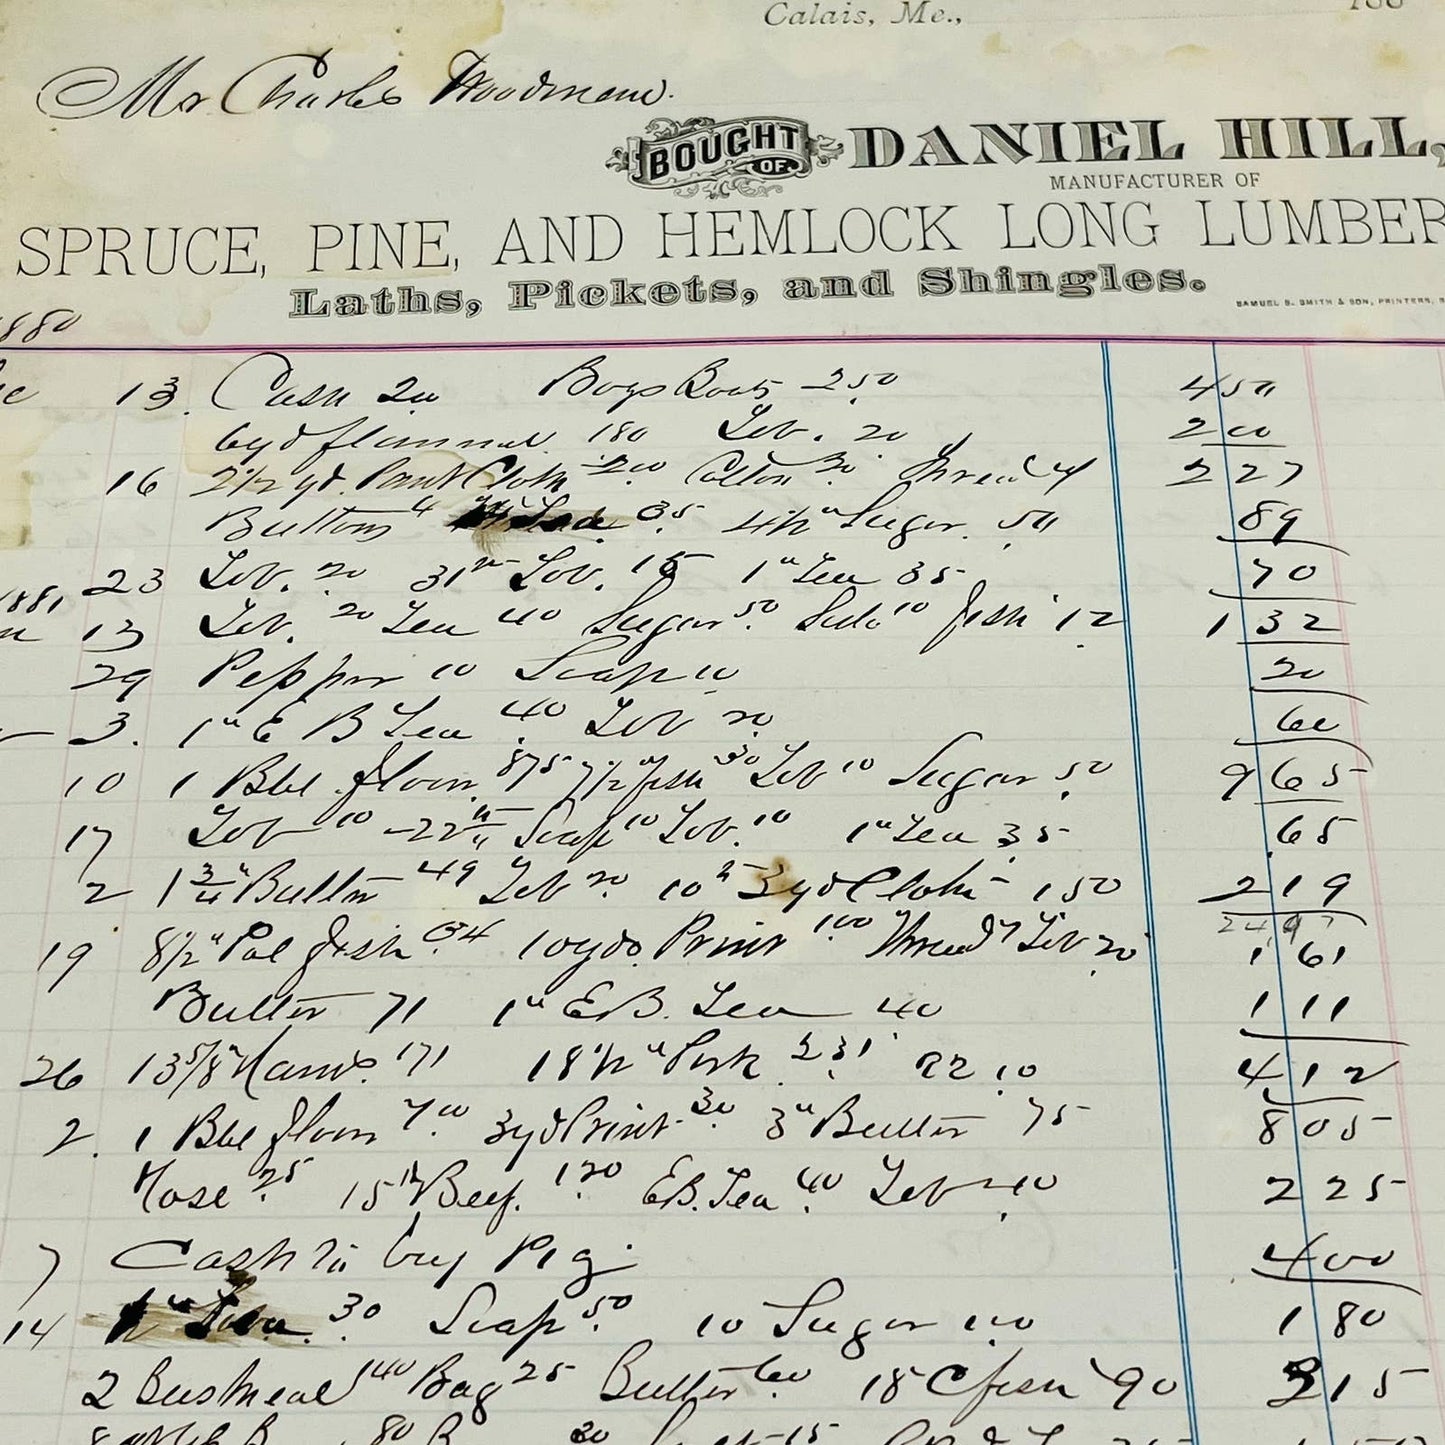 Calais, Me., 188
Mr Charles Woodman.
BOUGHT OF DANIEL HILL,
MANUFACTURER OF
SPRUCE, PINE, AND HEMLOCK LONG LUMBER
Laths, Pickets, and Shingles.
SAMUEL S. SMITH & SON, PRINTERS,
1880
13. Cash 200 Boys Boots 250 450
6 yds flannel 180 Tob. 20 200
16 2 1/2 yd. Pant Cloth 200 Cotton Thread 4 227
Buttons 4 35 4 lb Sugar 50 89
23 Tob. 20 31st Tob. 15 1" Tea 35 70
1881
13 Tob. 20 Tea 40 Sugar 50 10 fish 12 132
29 Pepper 10 Soap 10 20
3. 1" E B Tea 40 Tob 20 60
10 1 Bbl flour 875 7 1/2" fish 30 Tob 10 Sugar 50 965
17 Tob 10 22nd Soap 10 Tob. 10 1" Tea 35 65
2 1 3/4" Butter 49 Tob 20 10th 3 yd Cloth 150 219
2497
19 8 1/2" Pol fish 34 10 yds Print 100 Thread 7 Tob 20 161
Butter 71 1" E B. Tea 40 111
26 13 5/8" Ham 171 18 1/2" Pork 231 10 412
2. 1 Bbl flour 700 3 yd Print 30 3" Butter 75 805
Hose 25 15 lb Beef. 120 E B. Tea 40 Tob 40 225
7 Cash to buy Pig 400
14 30 Soap 50 10 Sugar 100 180
2 Bus meal 140 Bag 25 Butter 60 18 C fish 90 315